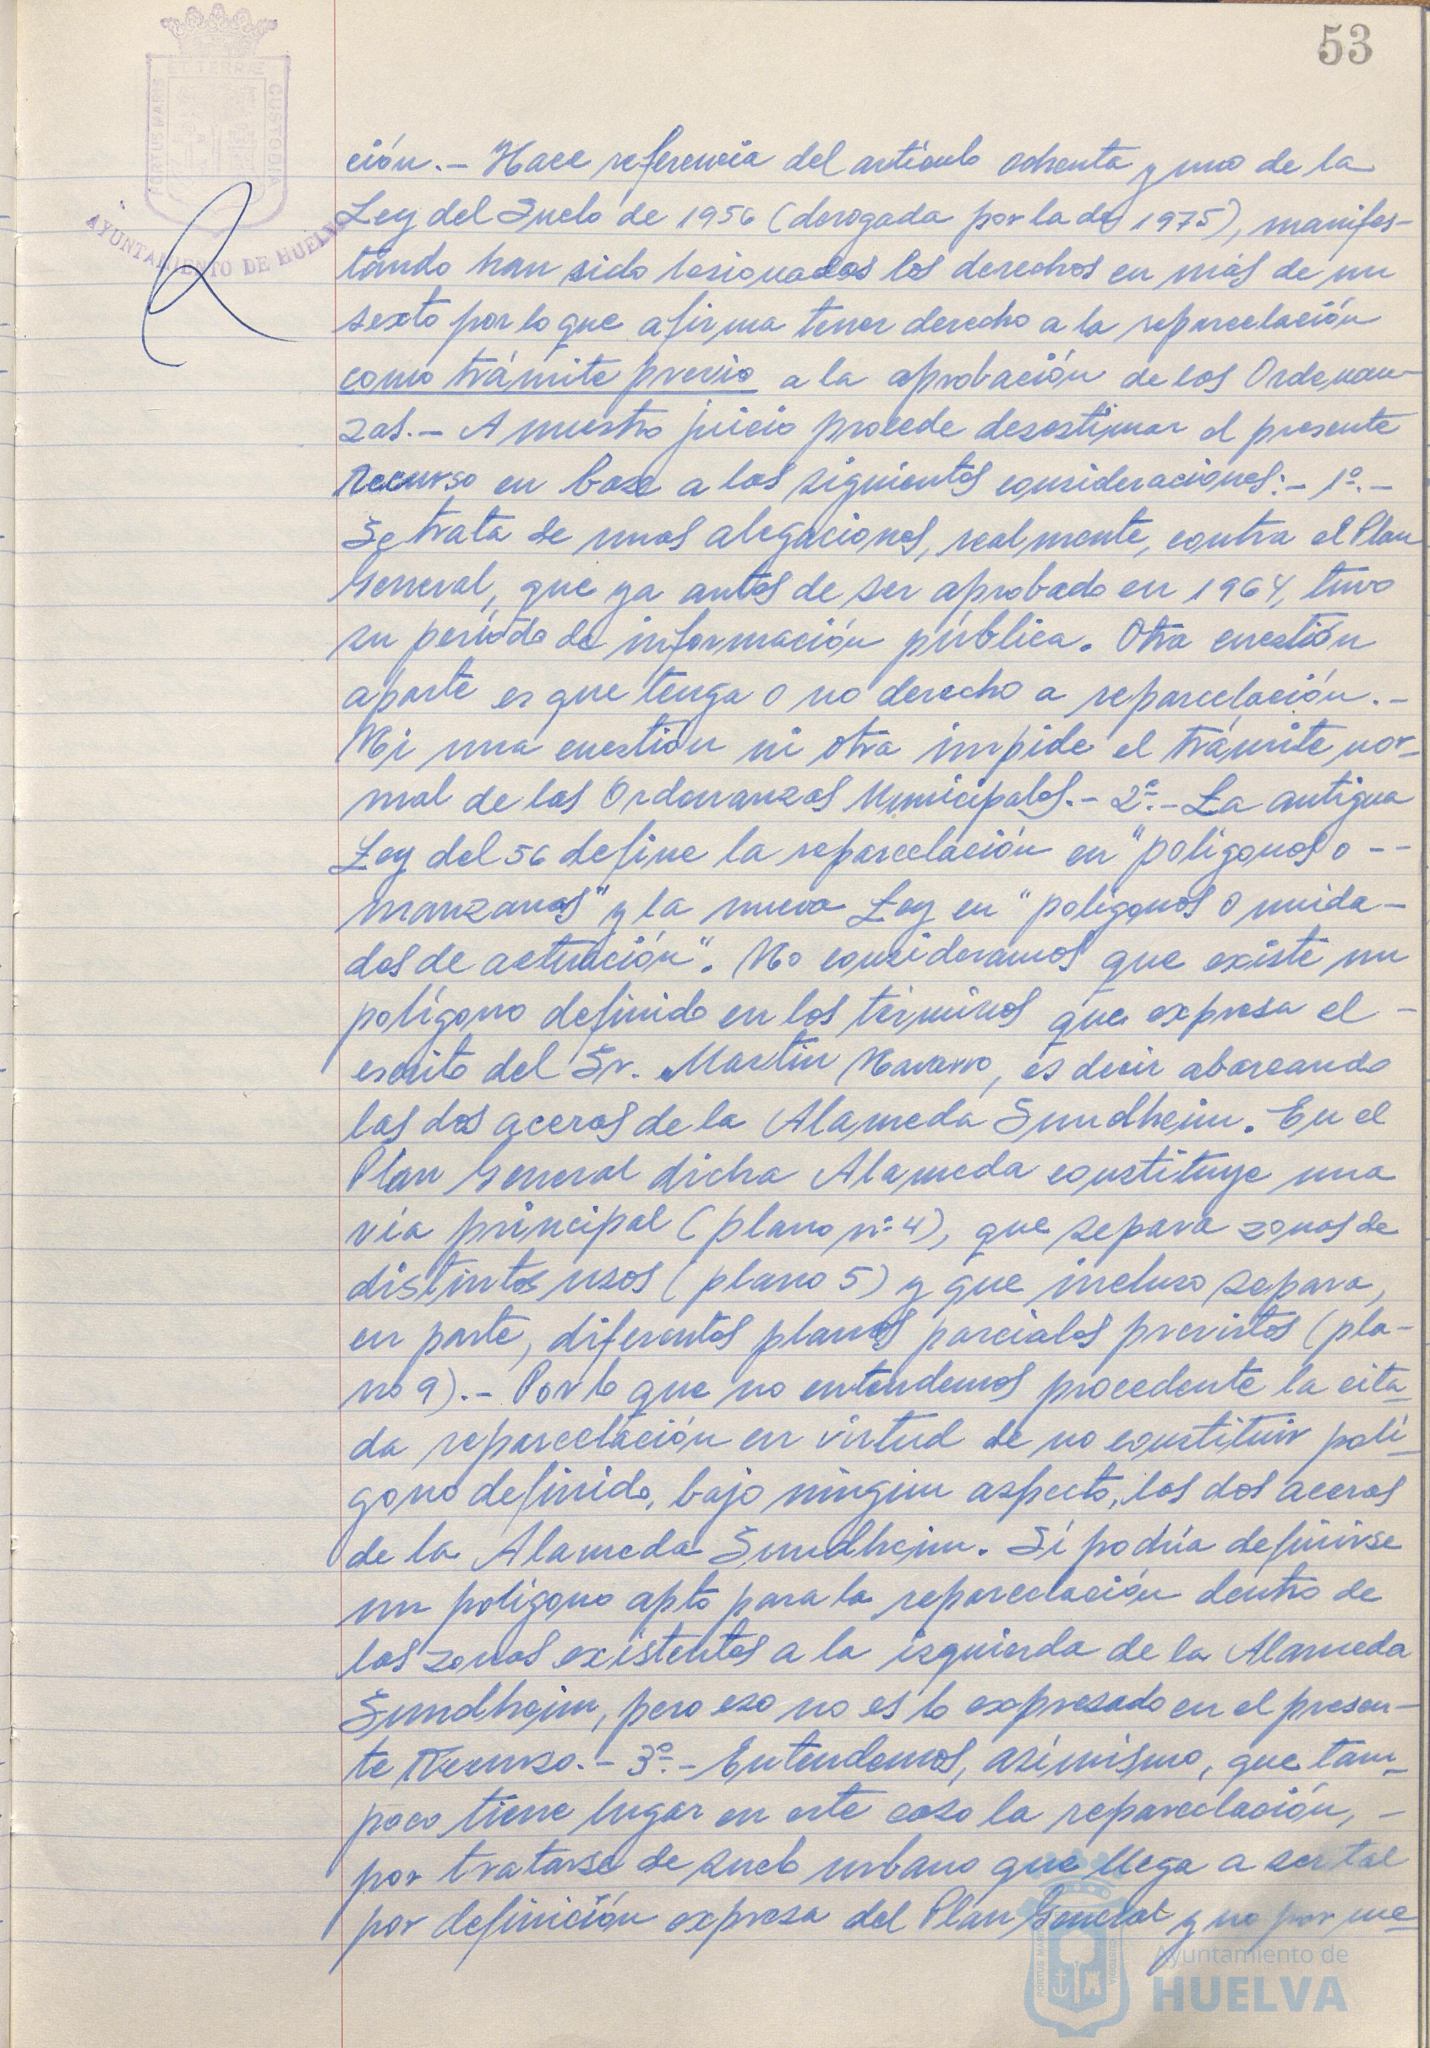 53
PORTUS MARIS
ET TERRÆ
CUSTODIA
AYUNTAMIENTO DE HUELVA
ción.- Hace referencia del artículo ochenta y uno de la
Ley del Suelo de 1956 (derogada por la de 1975), manifes-
tando han sido lesionados los derechos en más de un
sexto por lo que afirma tener derecho a la reparcelación
como trámite previo a la aprobación de las Ordenan-
zas.- A nuestro juicio procede desestimar el presente
Recurso en base a las siguientes consideraciones:- 1º.-
Se trata de unas alegaciones, realmente, contra el Plan
General, que ya antes de ser aprobado en 1964, tuvo
su período de información pública. Otra cuestión
aparte es que tenga o no derecho a reparcelación.-
Ni una cuestión ni otra impide el trámite nor-
mal de las Ordenanzas Municipales.- 2º.- La antigua
Ley del 56 define la reparcelación en "polígonos o --
manzanas" y la nueva Ley en "polígonos o unida-
des de actuación". No consideramos que existe un
polígono definido en los términos que expresa el -
escrito del Sr. Martín Navarro, es decir abarcando
las dos aceras de la Alameda Sundheim. En el
Plan General dicha Alameda constituye una
vía principal (plano nº 4), que separa zonas de
distintos usos (plano 5) y que incluso separa,
en parte, diferentes planes parciales previstos (pla-
no 9).- Por lo que no entendemos procedente la cita-
da reparcelación en virtud de no constituir polí-
gono definido, bajo ningún aspecto, las dos aceras
de la Alameda Sundheim. Sí podría definirse
un polígono apto para la reparcelación dentro de
las zonas existentes a la izquierda de la Alameda
Sundheim, pero eso no es lo expresado en el presen-
te Recurso.- 3º.- Entendemos, asimismo, que tam-
poco tiene lugar en este caso la reparcelación, -
por tratarse de suelo urbano que llega a ser tal
por definición expresa del Plan General y no por me-
Ayuntamiento de
HUELVA